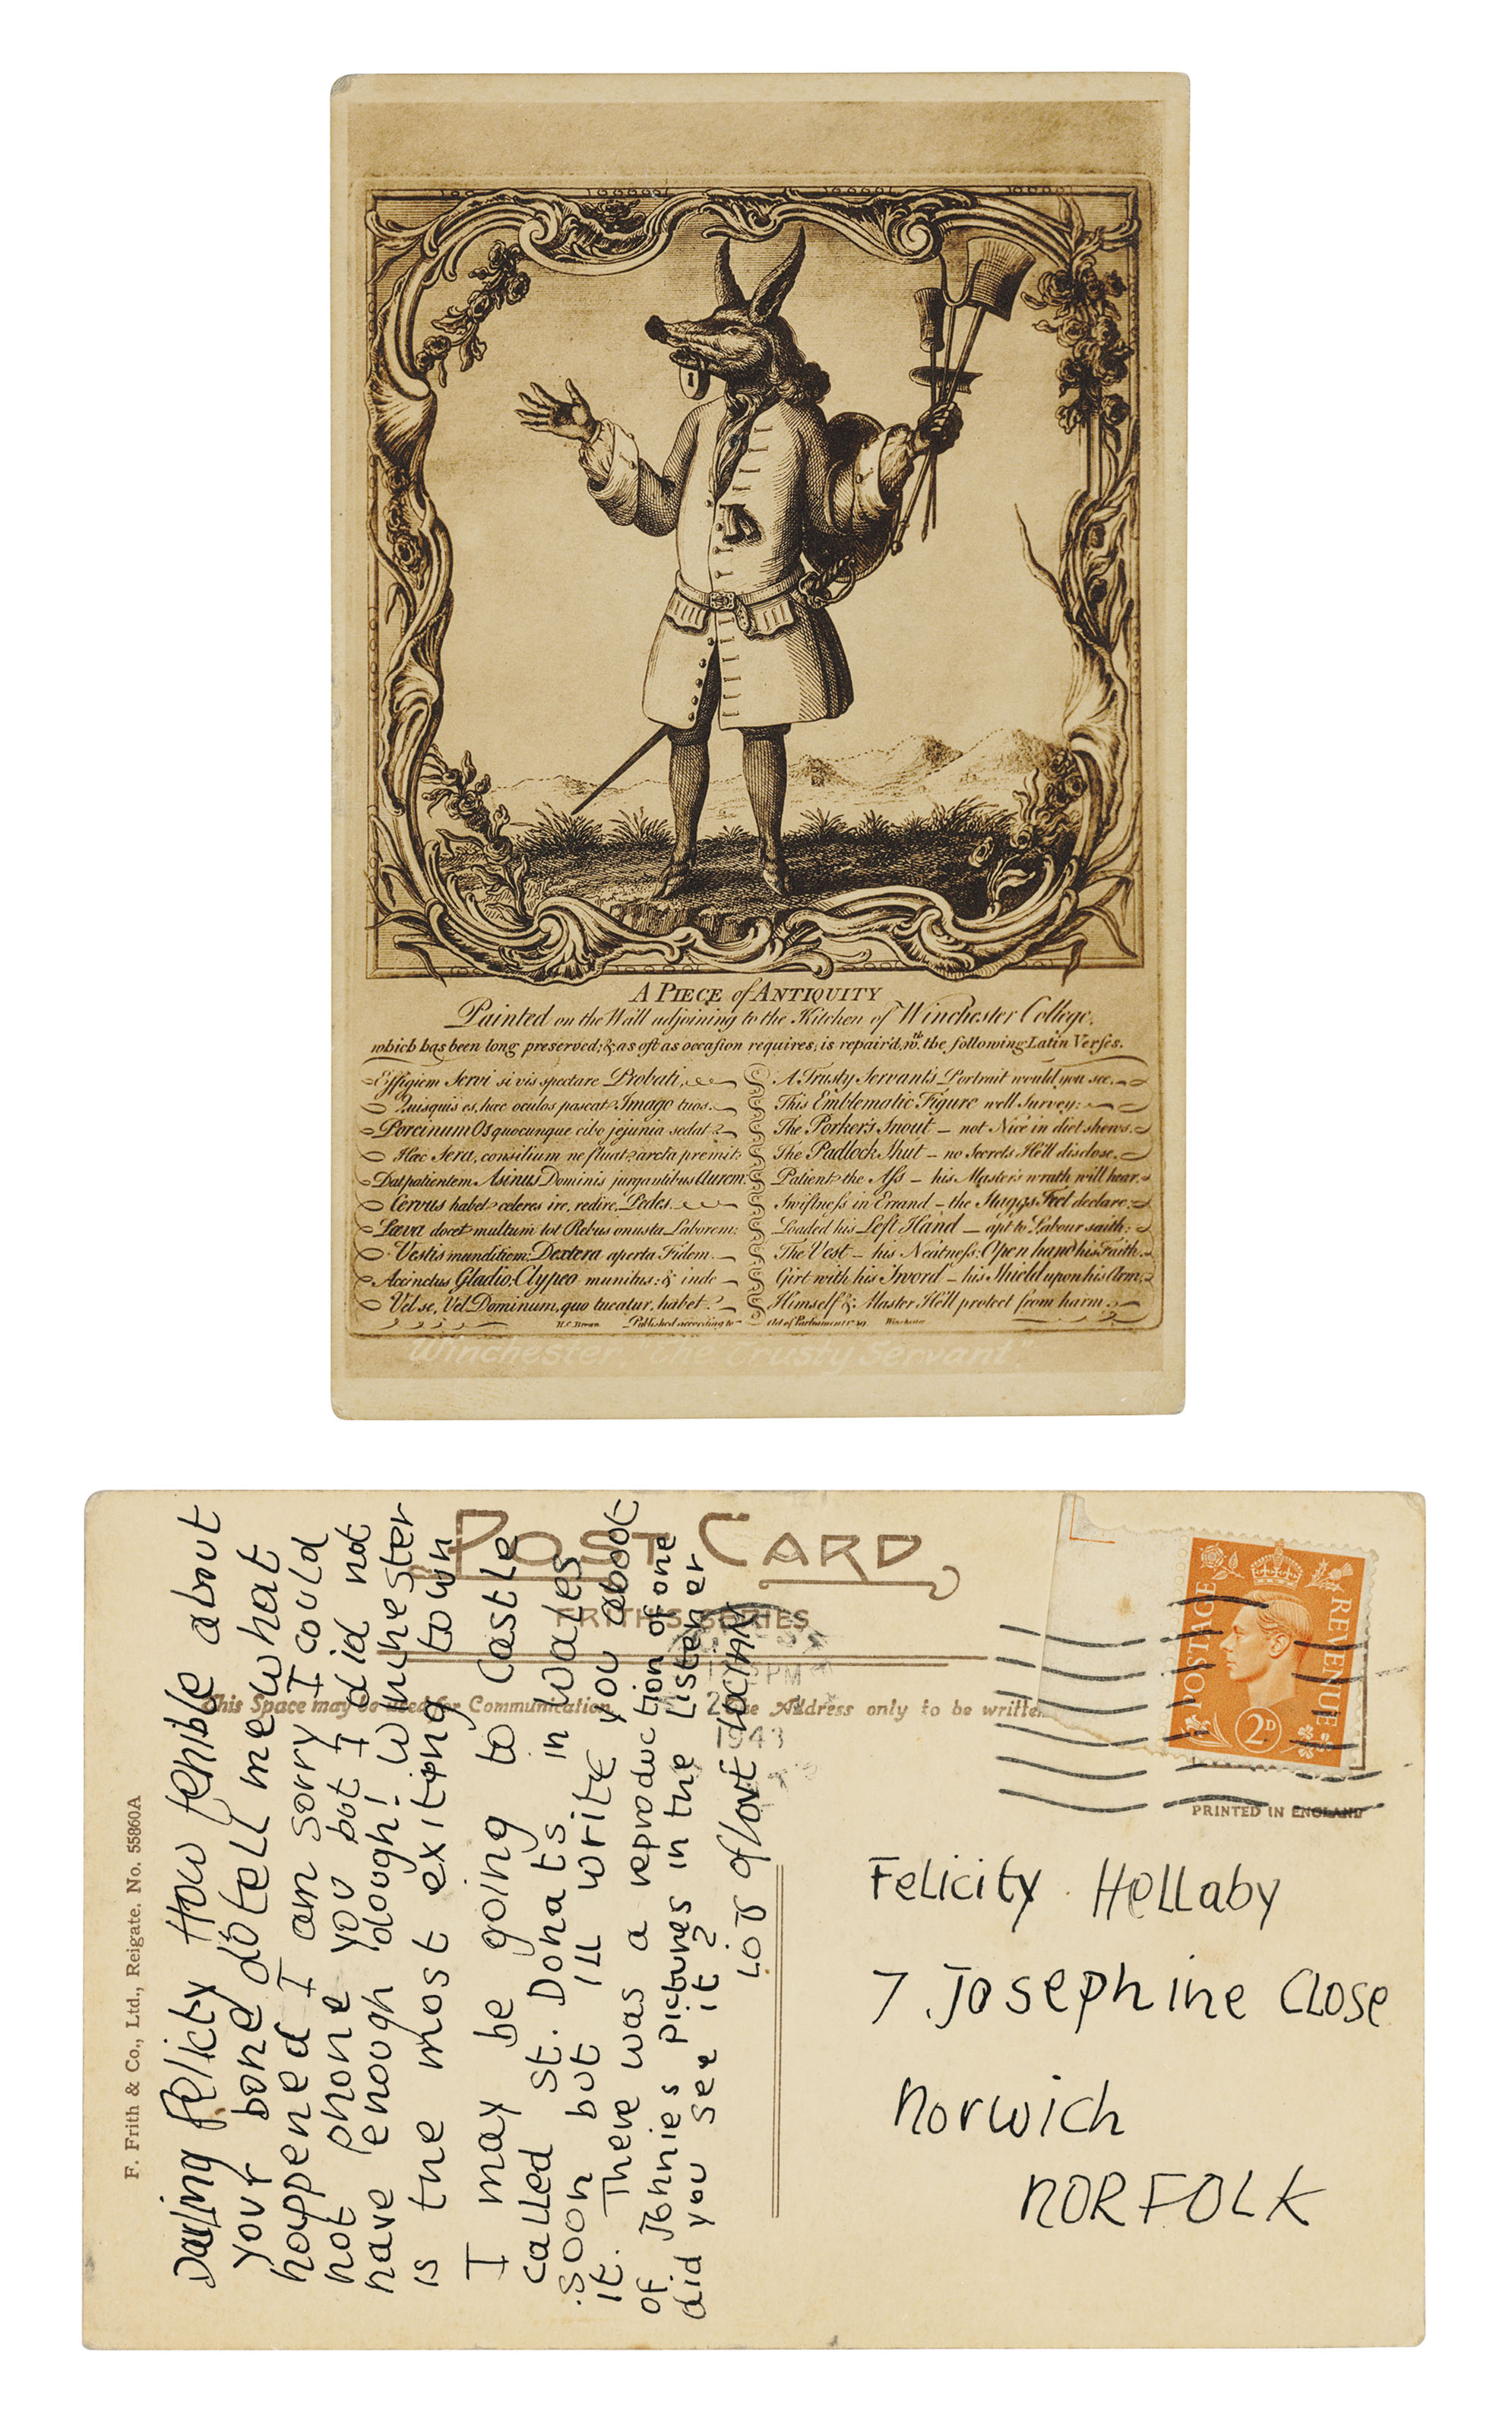 A PIECE of ANTIQUITY
Painted on the Wall adjoining to the Kitchen of Winchester College,
which has been long preserved; & as oft as occasion requires, is repair'd, wth. the following Latin Verses.
Effigiem Servi si vis spectare Probati,
Quisquis es, hæc oculos pascat Imago tuos.
Porcinum Os quocunque cibo jejunia sedat:
Hæc Sera, consilium ne fluat, arcta premit.
Dat patientem Asinus Dominis jurgantibus Aurem:
Cervus habet celeres ire, redire, Pedes.
Læva docet multum tot Rebus onusta Laborem:
Vestis munditiem: Dextera aperta Fidem.
Accinctus Gladio; Clypeo munitus: & inde
Vel se, Vel Dominum, quo tueatur, habet.
A Trusty Servant's Portrait would you see,
This Emblematic Figure well Survey:
The Porker's Snout – not Nice in diet shews:
The Padlock Shut – no Secrets He'll disclose.
Patient the Ass – his Master's wrath will hear:
Swiftness in Errand – the Staggs Feet declare:
Loaded his Left Hand – apt to Labour saith:
The Vest – his Neatness: Open hand his Faith.
Girt with his Sword – his Shield upon his Arm,
Himself & Master He'll protect from harm.
Published according to Act of Parliament Winchester
Winchester, "The Trusty Servant".
POST CARD
FRITH'S SERIES
This Space may be used for Communication
The Address only to be written
PRINTED IN ENGLAND
F. Frith & Co., Ltd., Reigate. No. 55860A
POSTAGE
REVENUE
2D
PM
1943
Darling Felicty How ferible about
your bone dotell me what
happened I am sorry I could
not phone you but I did not
have enough dough! Winchester
is the most exiting town
I may be going to Castle
called St. Donats in Wales
soon but ILL write you about
it. There was a reproduction of one
of Johnies pictures in the Listener
did you see it?
LOTS of love
Felicity Hellaby
7 Josephine Close
Norwich
NORFOLK